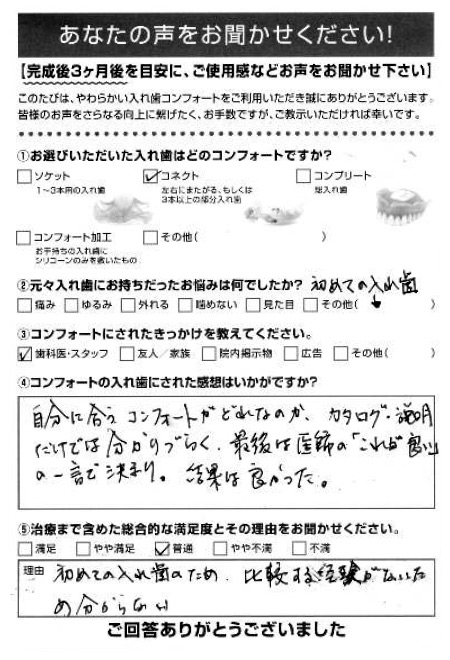 あなたの声をお聞かせください!
【完成後3ヶ月後を目安に、ご使用感などお声をお聞かせ下さい】
このたびは、やわらかい入れ歯コンフォートをご利用いただき誠にありがとうございます。
皆様のお声をさらなる向上に繋げたく、お手数ですが、ご教示いただければ幸いです。
①お選びいただいた入れ歯はどのコンフォートですか?
□ソケット ☑コネクト □コンプリート
1〜3本用の入れ歯 左右にまたがる、もしくは 総入れ歯
3本以上の部分入れ歯
□コンフォート加工 □その他( )
お手持ちの入れ歯に
シリコーンのみを敷いたもの
②元々入れ歯にお持ちだったお悩みは何でしたか? 初めての入れ歯
□痛み □ゆるみ □外れる □噛めない □見た目 □その他( )
③コンフォートにされたきっかけを教えてください。
☑歯科医・スタッフ □友人/家族 □院内掲示物 □広告 □その他( )
④コンフォートの入れ歯にされた感想はいかがですか?
自分に合うコンフォートがどれなのか、カタログ・説明
だけでは分かりづらく、最後は医師の「これが良い」
の一言で決まり。結果は良かった。
⑤治療まで含めた総合的な満足度とその理由をお聞かせください。
□満足 □やや満足 ☑普通 □やや不満 □不満
理由 初めての入れ歯のため、比較する経験がないた
め分からない
ご回答ありがとうございました